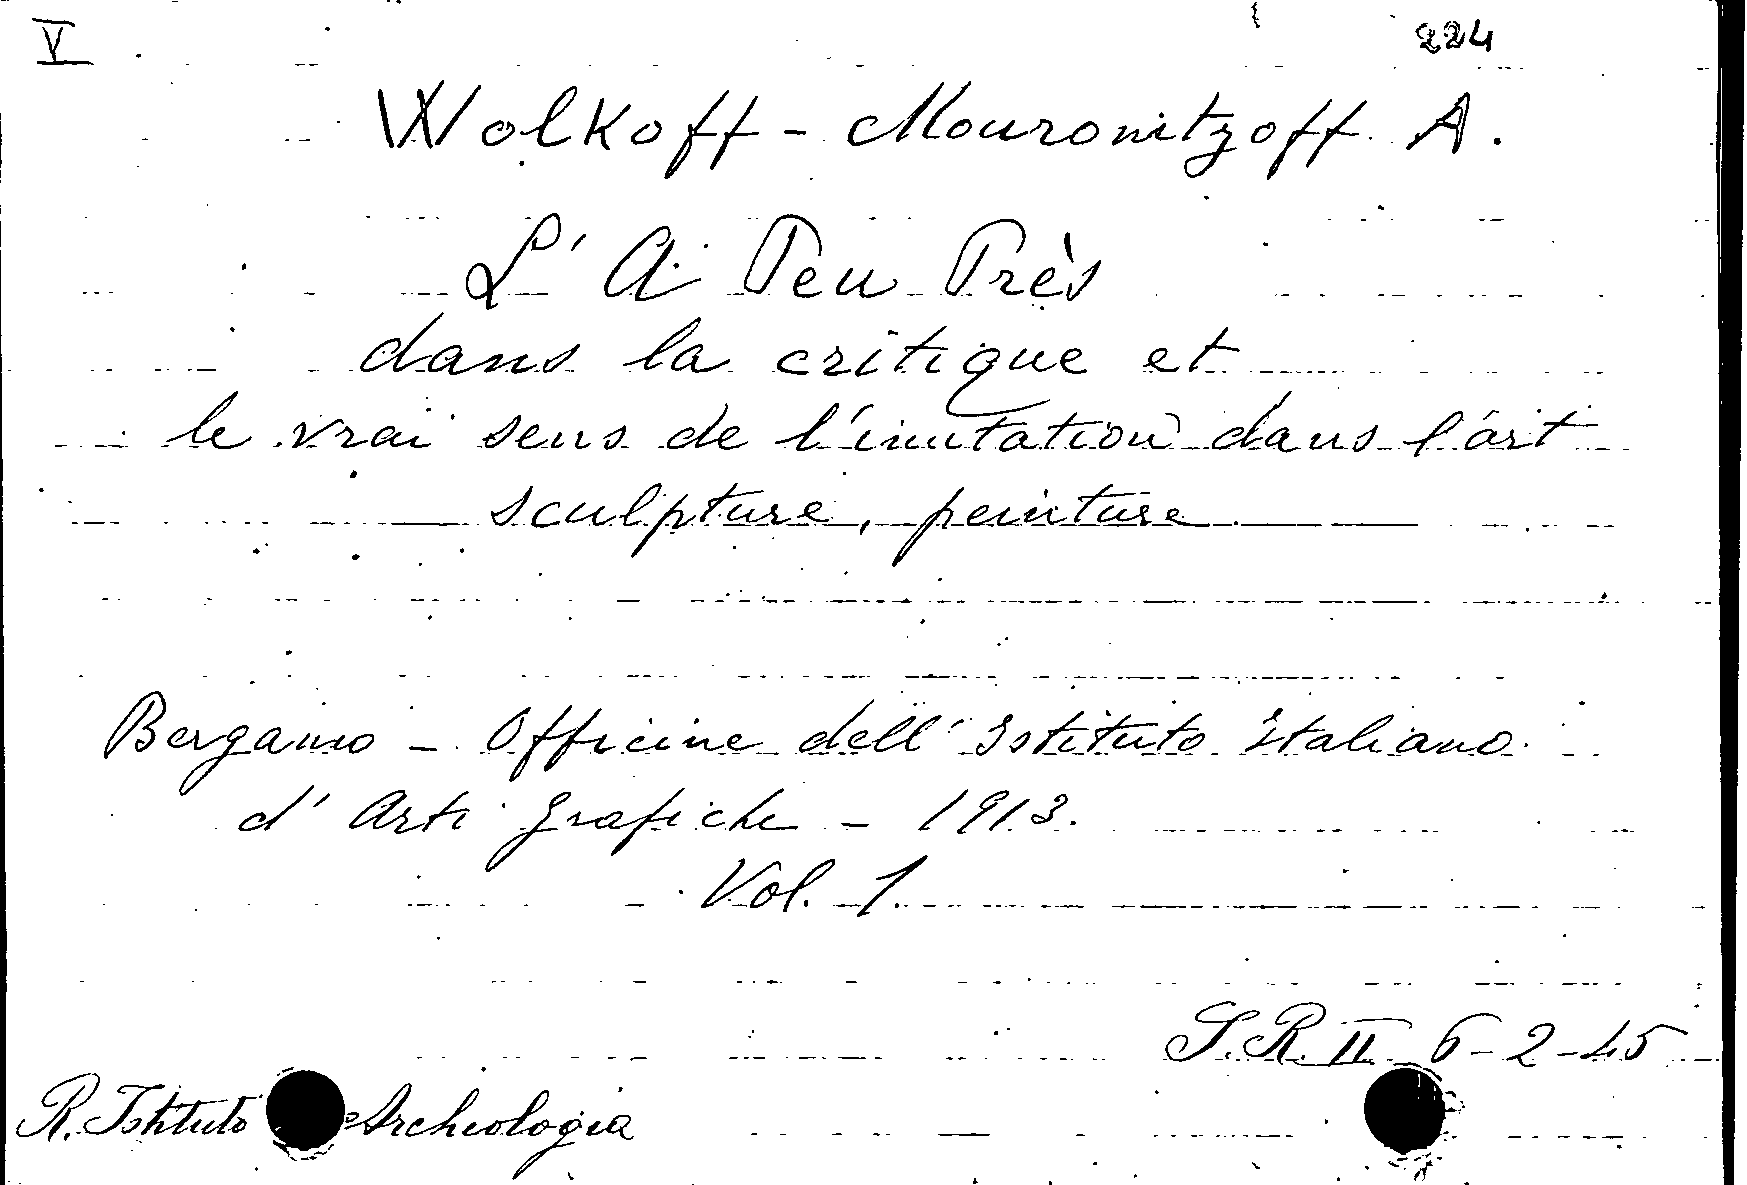 V 224
Wolkoff - Mouronitzoff A.
L' A Peu Près
dans la critique et
le vrai sens de l'imitation dans l'art
sculpture, peinture
Bergamo - Officine dell' Istituto Italiano
d' Arti Grafiche - 1913.
Vol. 1.
S.R. II 6-2-45
R. Istituto Archeologia